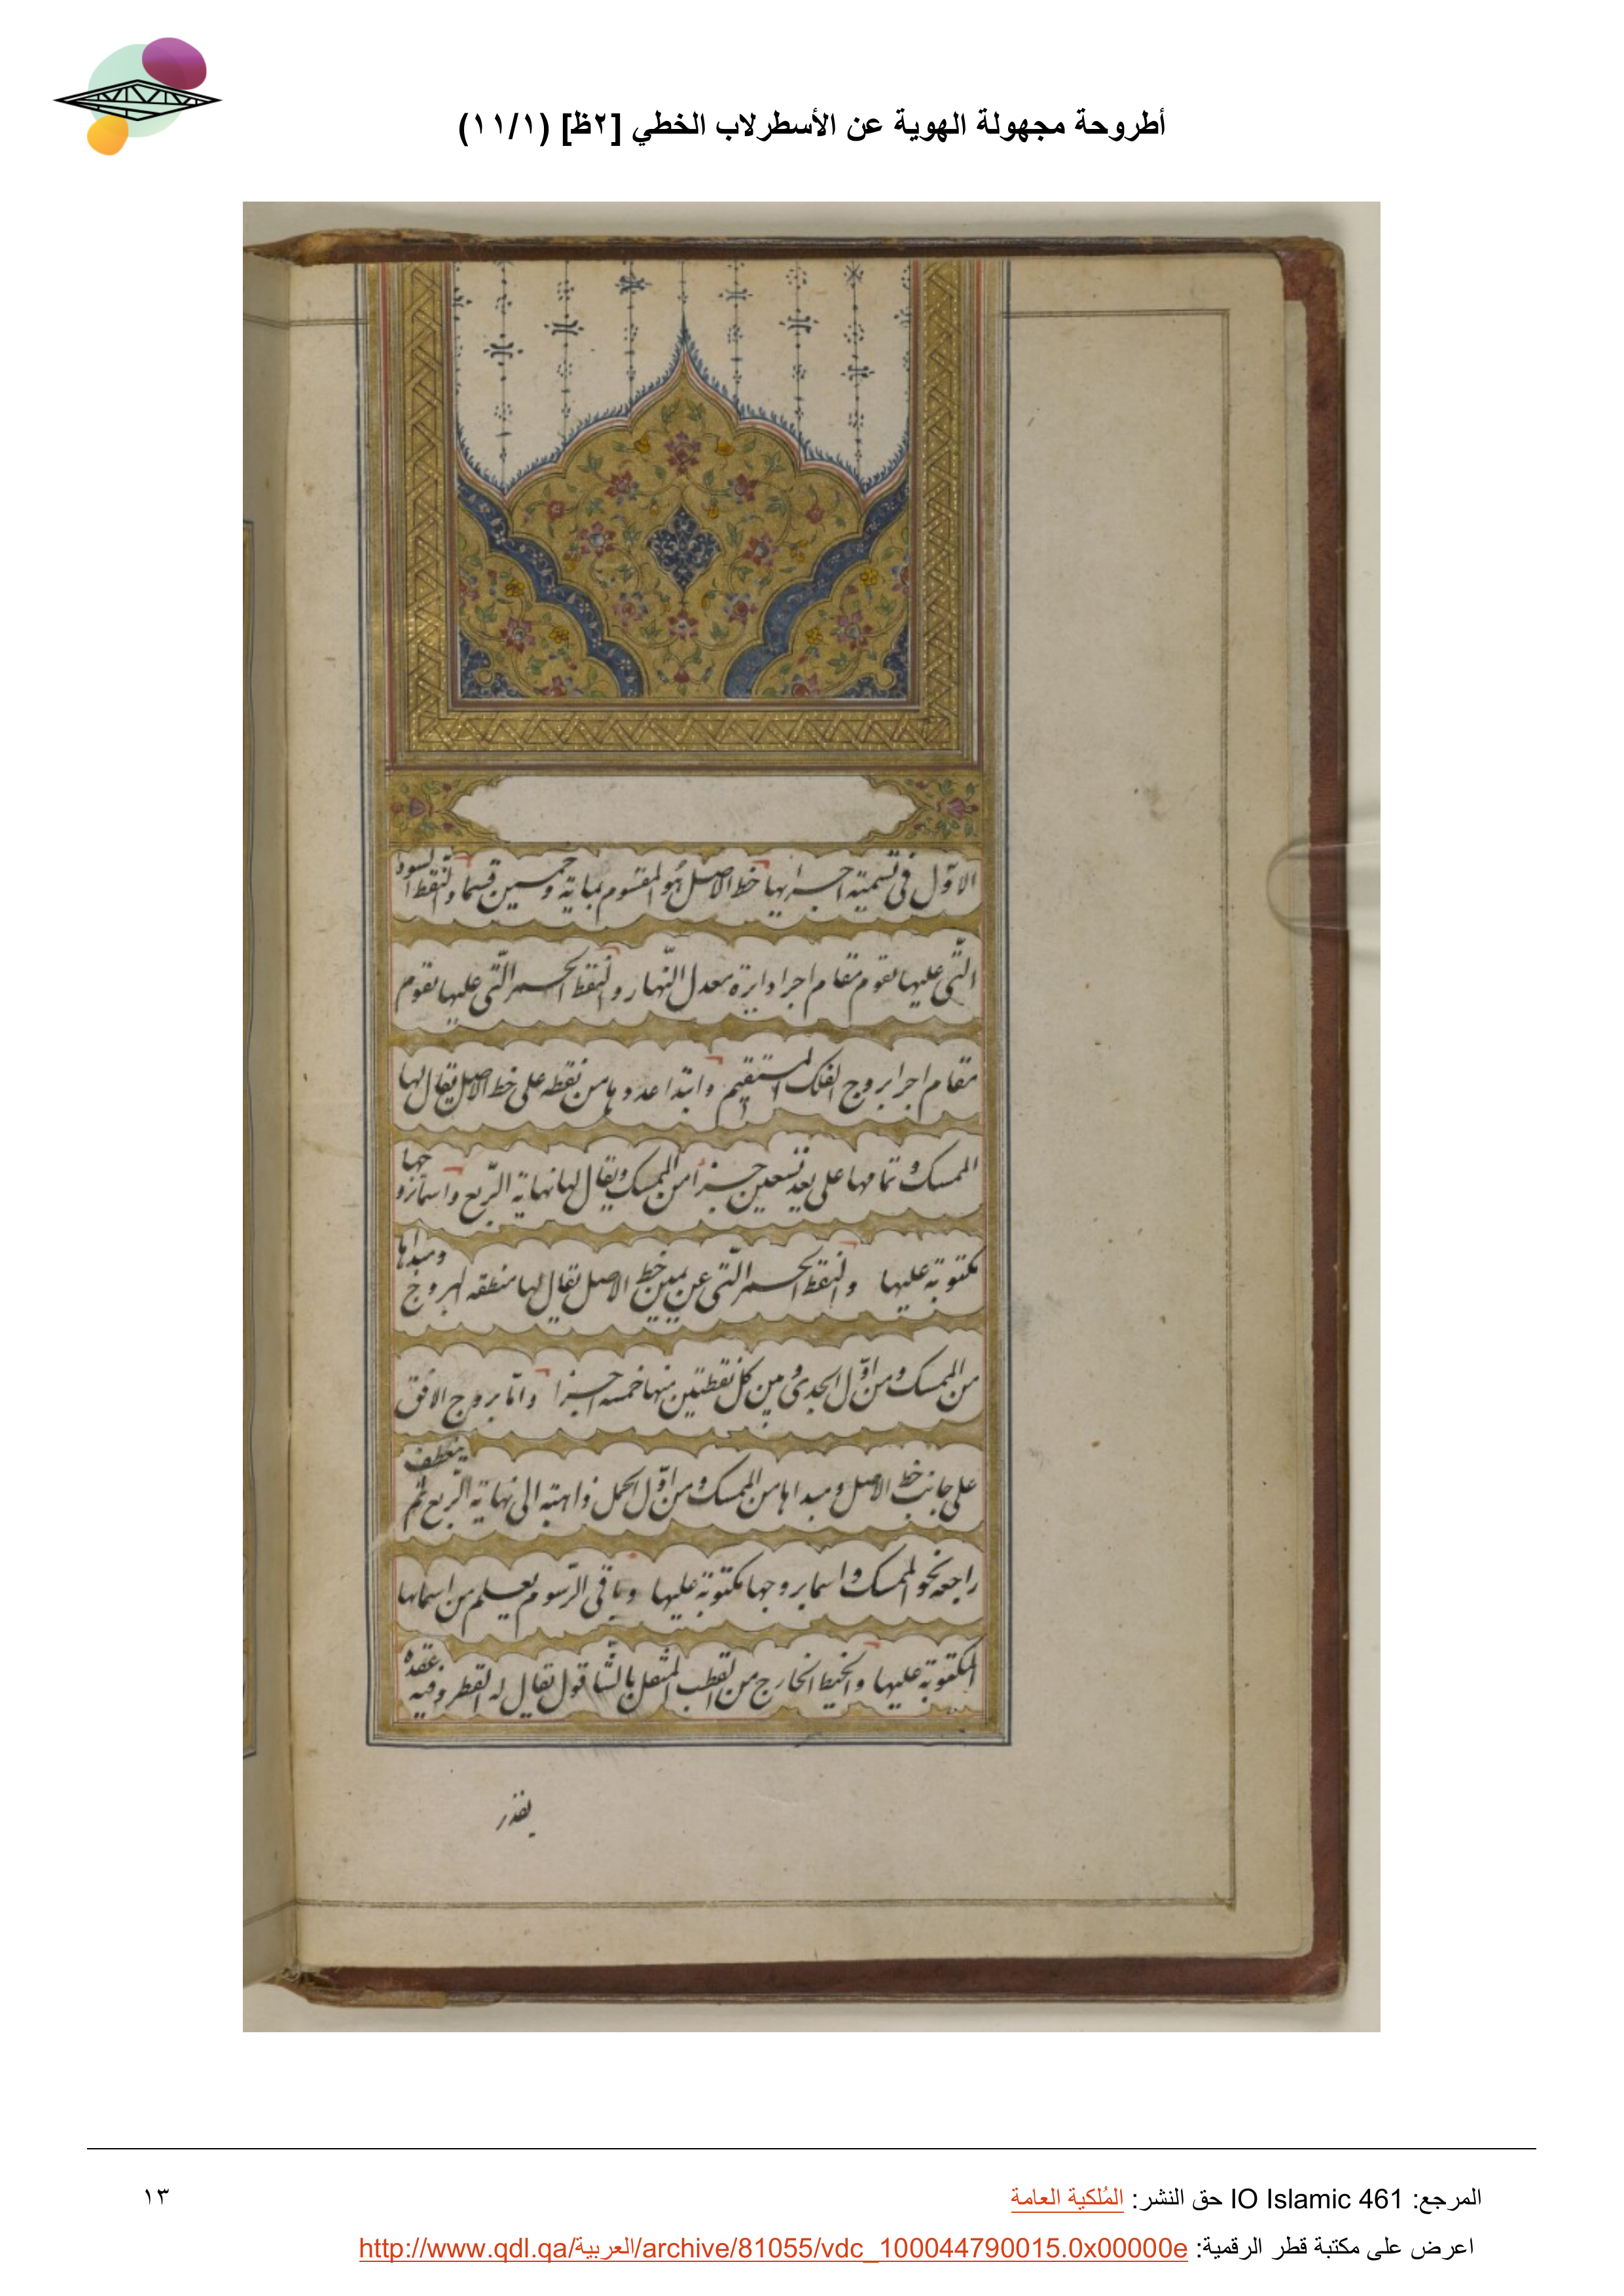 أطروحة مجهولة الهوية عن الأسطرلاب الخطي [٢ظ] (١١/١)
الاوّل فى تسمية اجزايها خط الاصل هو المقسوم بماية وخمسين قسما والنقط السود
الّتى عليها تقوم مقام اجزا دايرة معدل النّهار والنقط الحمر الّتى عليها تقوم
مقام اجزا بروج الفلك المستقيم وابتدا عدوها من نقطه على خط الاصل يقال لها
الممسك و تمامها على بعد تسعين جزأ من الممسك ويقال لها نهاية الرّبع واسما بروجها
مكتوبة عليها والنقط الحمر الّتى عن يمين خط الاصل يقال لها منطقه البروج ومبداها
من الممسك ومن اوّل الجدى و بين كل نقطتين منها خمسه اجزا وامّا بروج الافق
على جانب خط الاصل ومبداها من الممسك ومن اوّل الحمل ذاهبة الى نهاية الرّبع ثم ينعطف
راجعه نحو الممسك و اسما بروجها مكتوبة عليها وباقى الرّسوم يعلم من اسمائها
المكتوبة عليها والخيط الخارج من القطب المثقل بالشاقول يقال له القطر وفيه عقده
بقدر
المرجع: IO Islamic 461 حق النشر: المُلكية العامة
١٣
اعرض على مكتبة قطر الرقمية: http://www.qdl.qa/العربية/archive/81055/vdc_100044790015.0x00000e